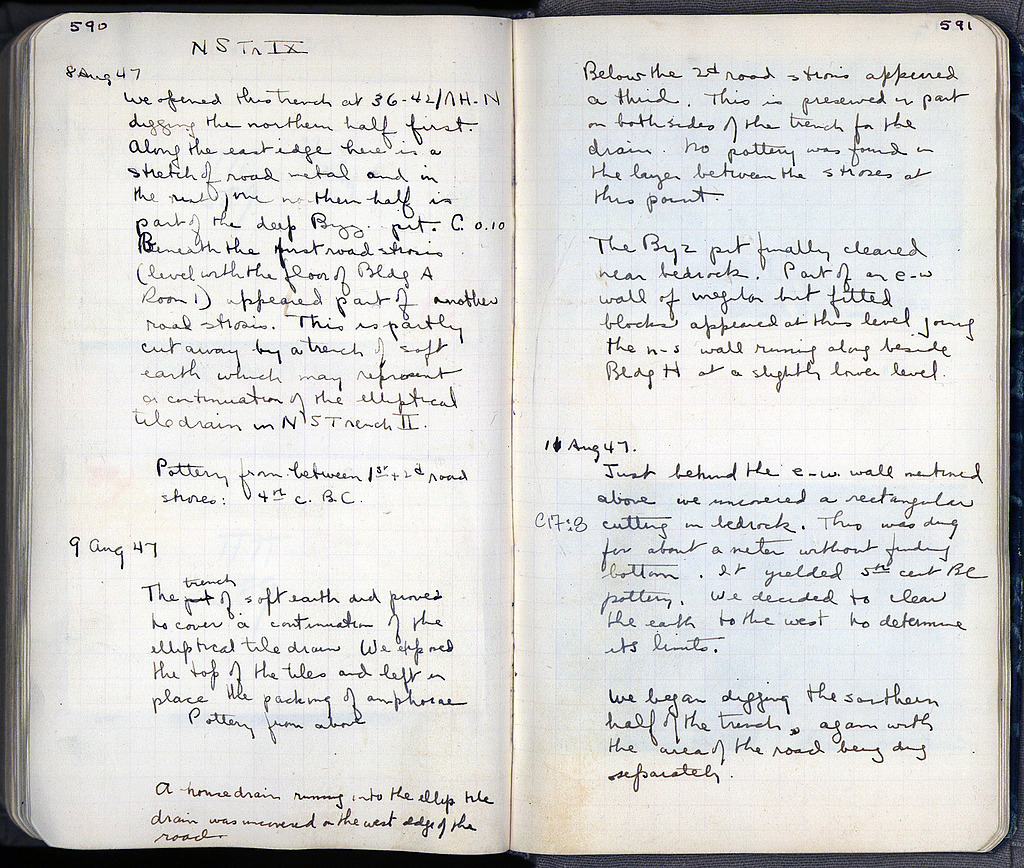 590
N S Tr IX
8 Aug 47
We opened this trench at 36-42/ΛH-N
digging the northern half first.
Along the east edge here is a
stretch of road metal and in
the rest of the northern half is
part of the deep Byz. pit. C. 0.10
Beneath the first road strosis
(level with the floor of Bldg A
Room 1) appeared part of another
road strosis. This is partly
cut away by a trench of soft
earth which may represent
a continuation of the elliptical
tile drain in N S Trench II.
Pottery from between 1st + 2d road
stroses: 4th c. B.C.
9 Aug 47
trench
The pit of soft earth did proved
to cover a continuation of the
elliptical tile drain We exposed
the top of the tiles and left in
place the packing of amphorae
Pottery from above
A house drain running into the ellip tile
drain was uncovered on the west edge of the
road
591
Below the 2d road strosis appeared
a third. This is preserved in part
on both sides of the trench for the
drain. No pottery was found in
the layer between the stroses at
this point.
The Byz pit finally cleared
near bedrock. Part of an e-w
wall of irregular but fitted
blocks appeared at this level joining
the n-s wall running along beside
Bldg H at a slightly lower level.
11 Aug 47.
Just behind the e-w. wall mentioned
above we uncovered a rectangular
C17:3 cutting in bedrock. This was dug
for about a meter without finding
bottom. It yielded 5th cent BC
pottery. We decided to clear
the earth to the west to determine
its limits.
We began digging the southern
half of the trench, again with
the area of the road being dug
separately.